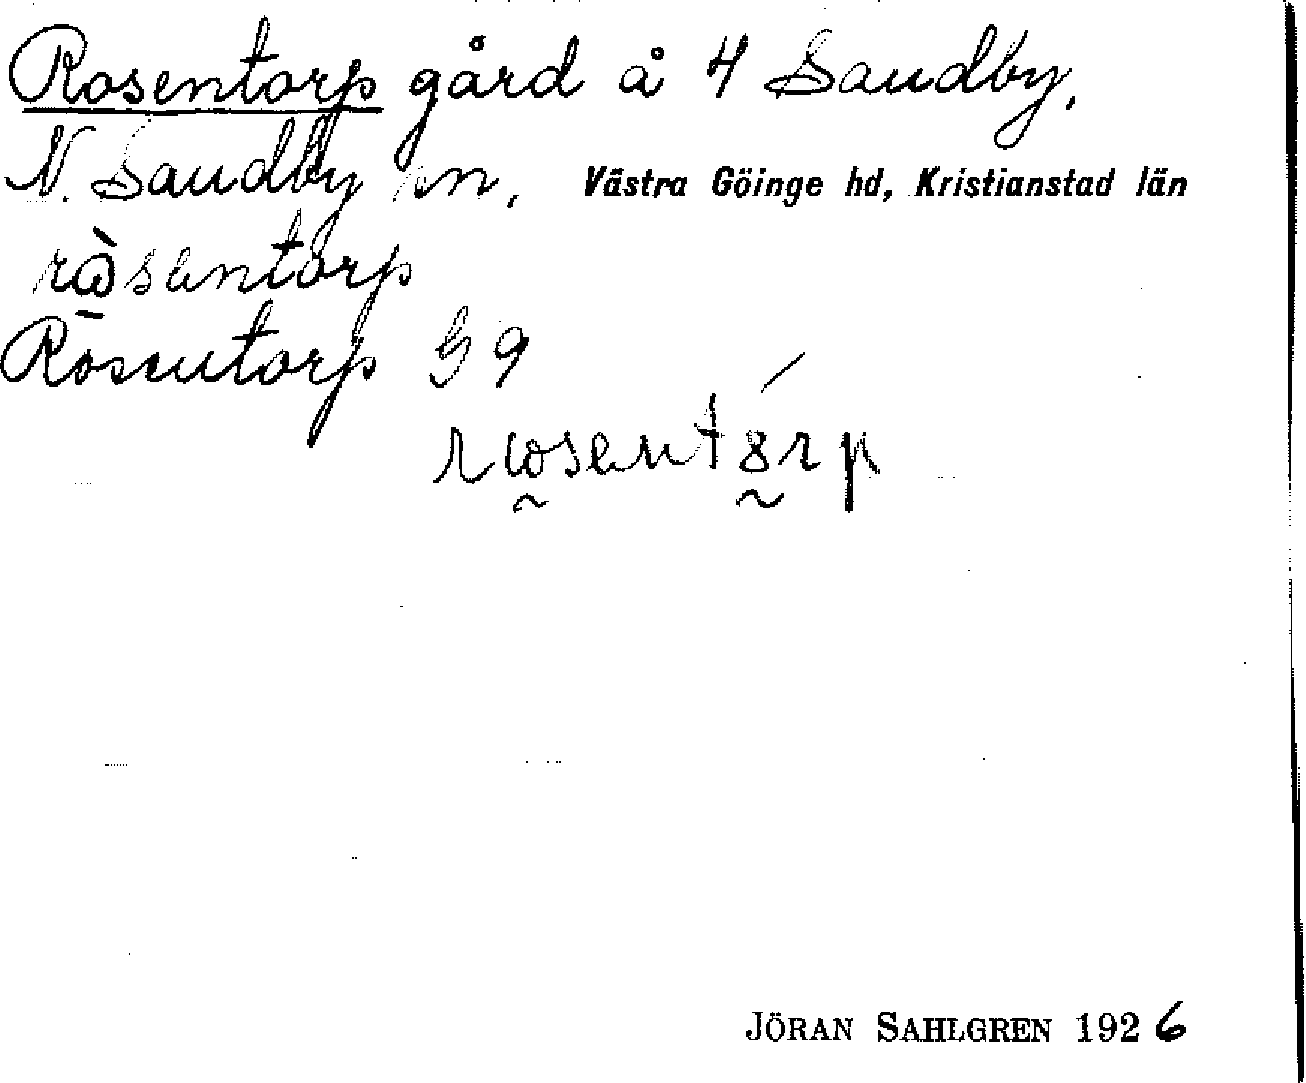 Rosentorp gård å 4 Sandby,
N. Sandby sn, Västra Göinge hd, Kristianstad län
rὼsentorp
Rosentorp G 9
rωsentȣ́rp
JÖRAN SAHLGREN 1926